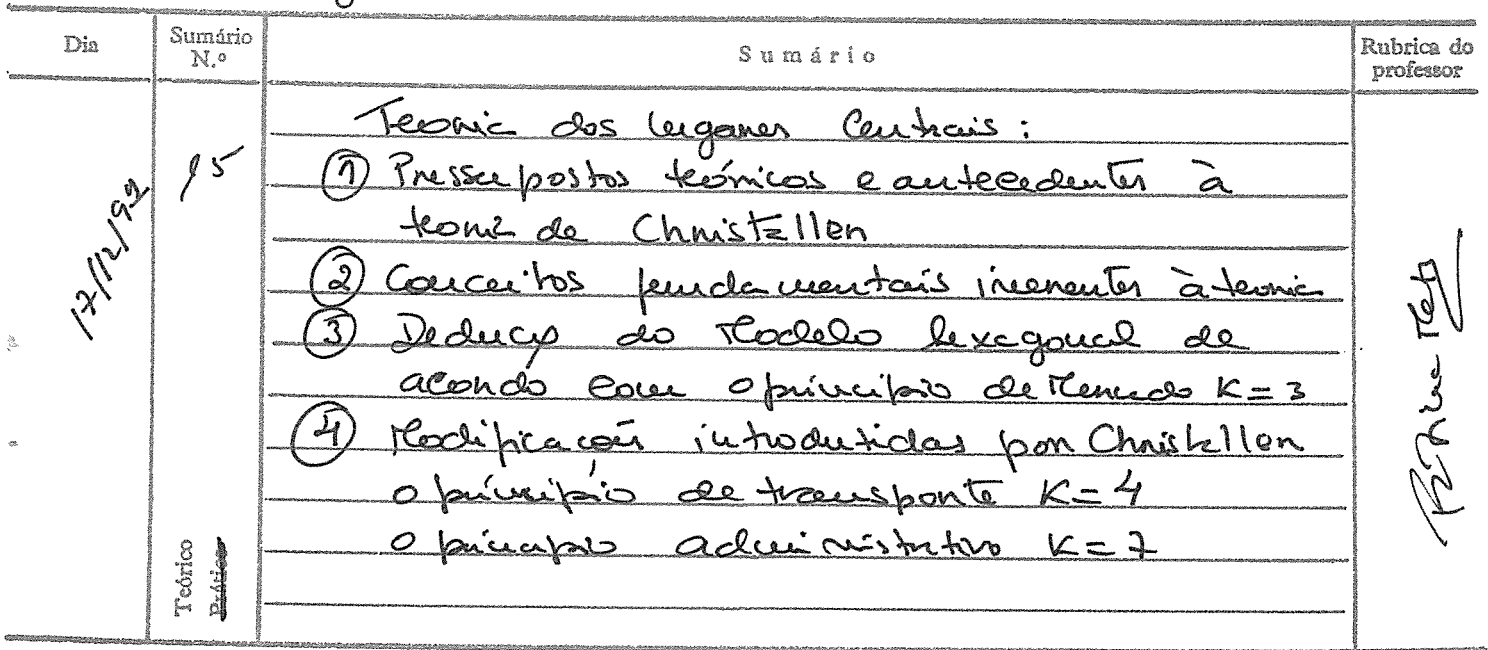 Dia Sumário N.º Sumário Rubrica do professor
17/12/92 15
Teoria dos lugares Centrais:
① Pressupostos teóricos e antecedentes à
teoria de Christaller
② Conceitos fundamentais inerentes à teoria
③ Dedução do Modelo hexagonal de
acordo com o princípio de Mercado K=3
④ Modificações introdutidas por Christaller
o princípio de transporte K=4
o princípio administrativo K=7
Teórico
Prático